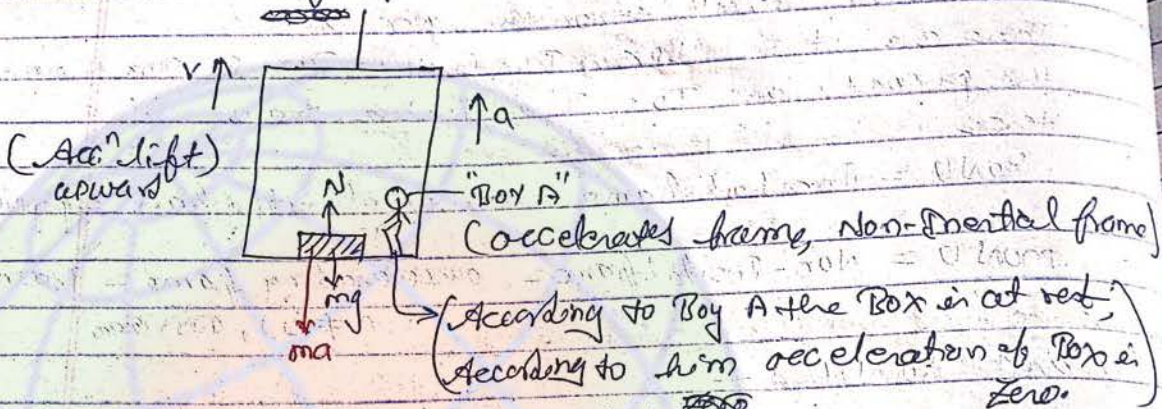 V ↑
↑ a
(Accⁿ lift)
upward
N
"Boy A"
(accelerates frame, Non-Inertial frame)
mg
ma
(According to Boy A the Box is at rest,
According to him acceleration of Box is
Zero.)